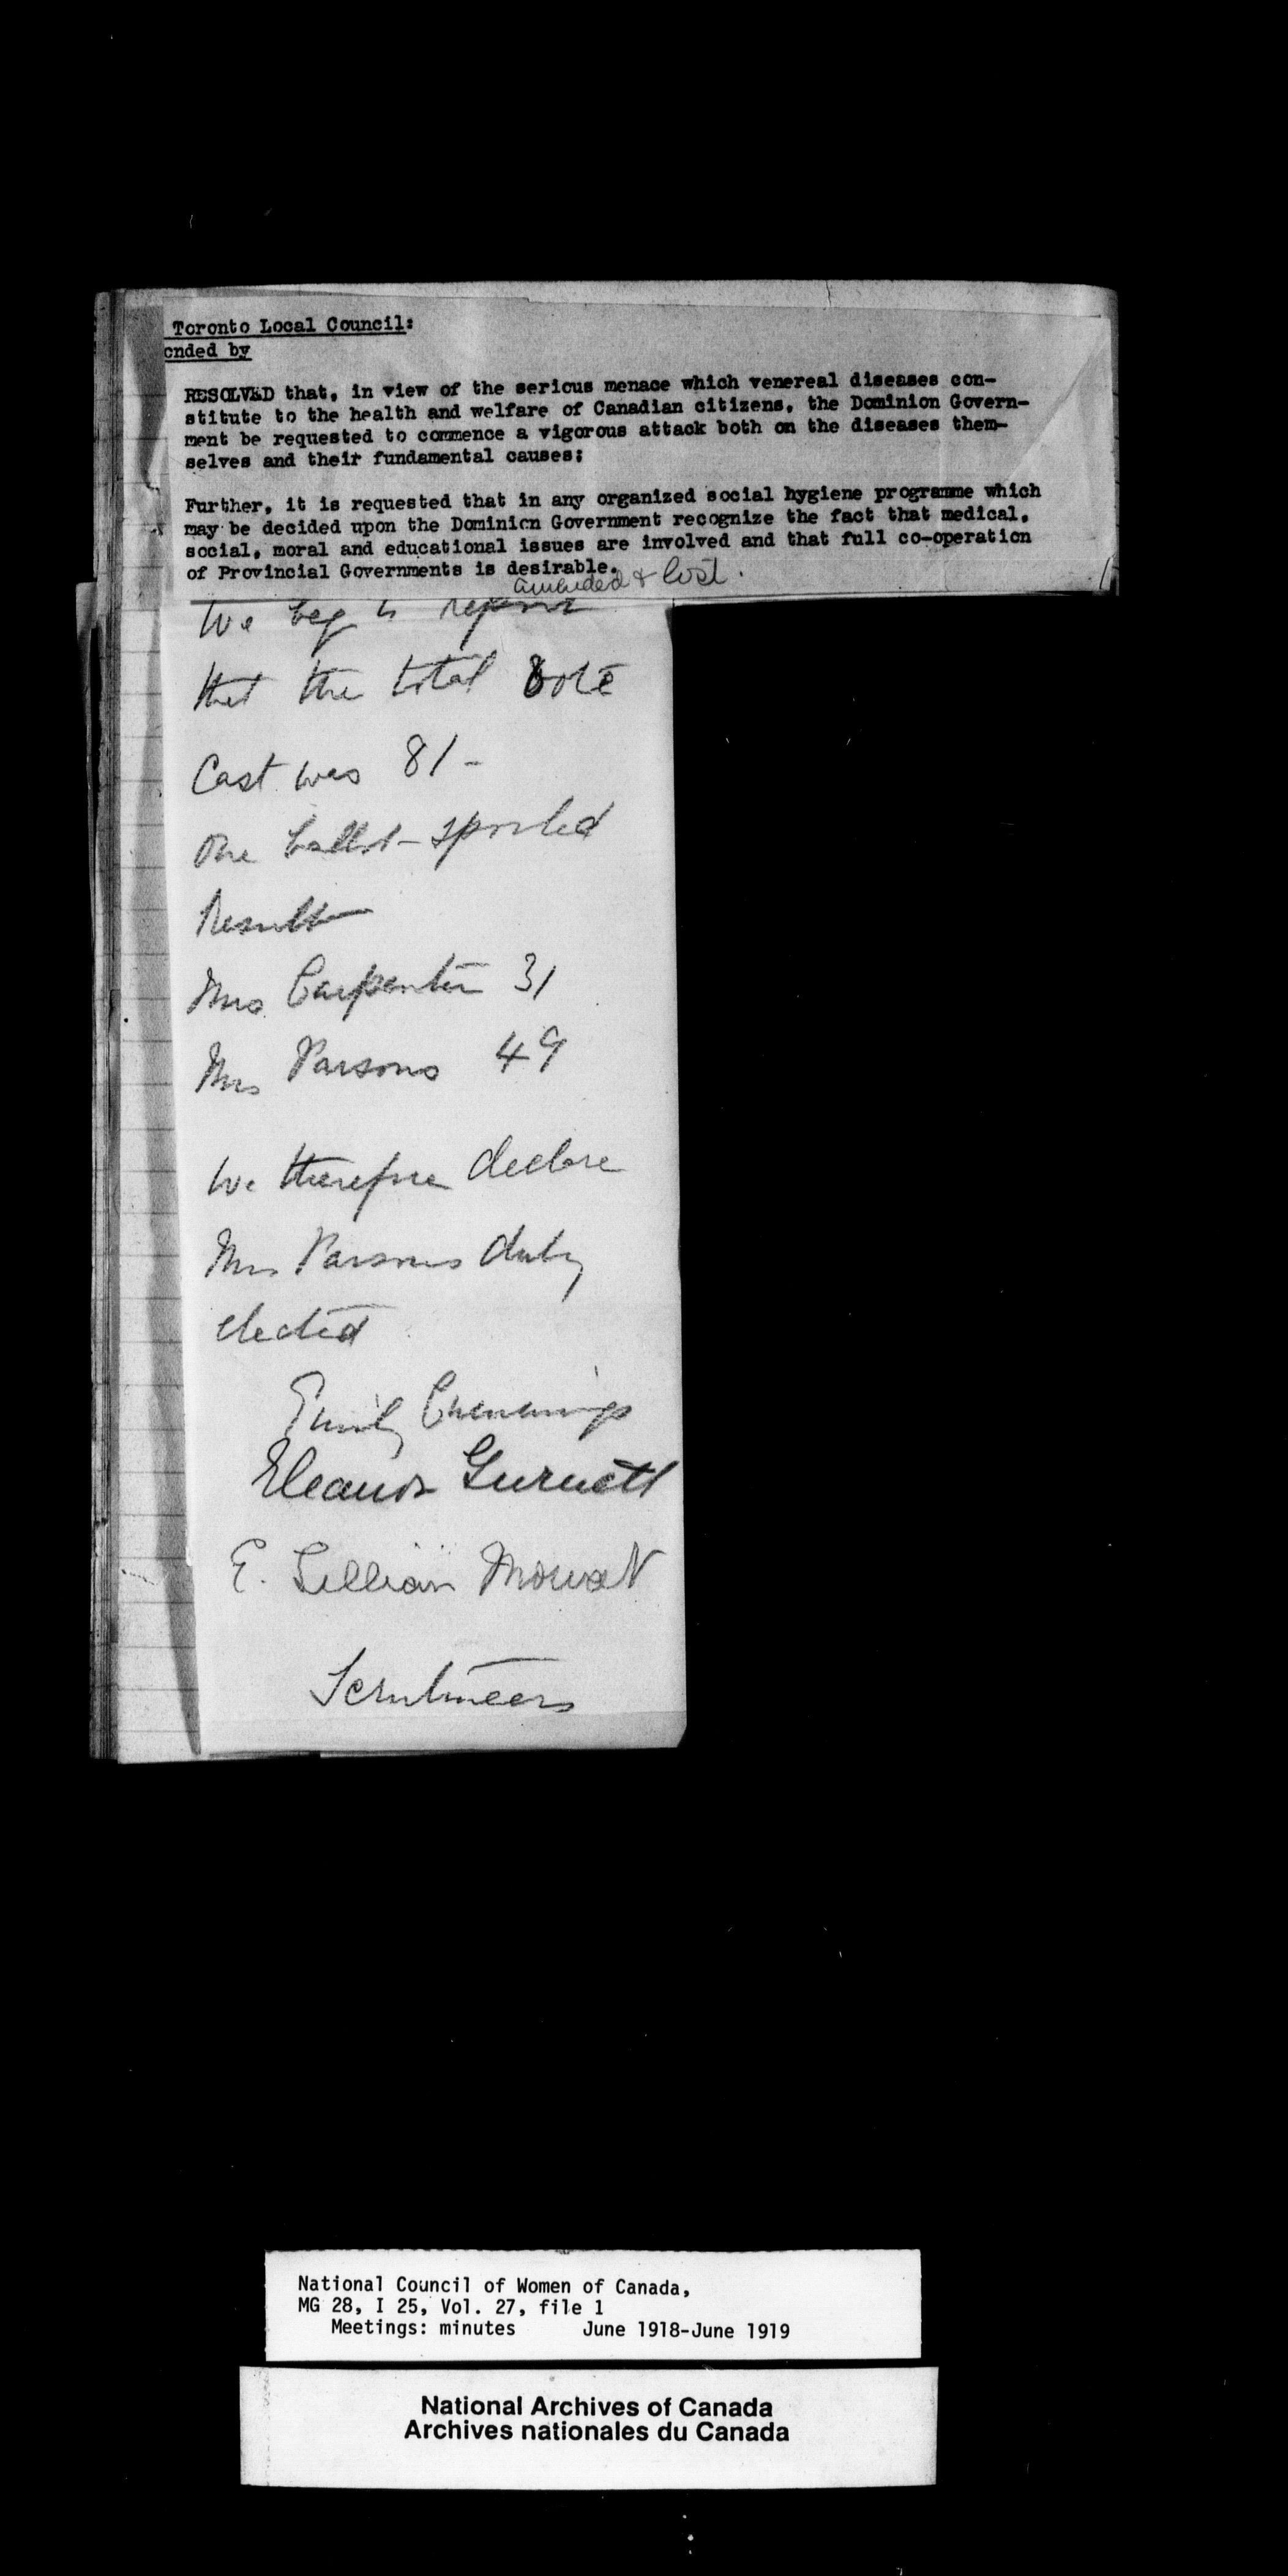 Toronto Local Council:
onded by
RESOLVED that, in view of the serious menace which venereal diseases con-
stitute to the health and welfare of Canadian citizens, the Dominion Govern-
ment be requested to commence a vigorous attack both on the diseases them-
selves and their fundamental causes:
Further, it is requested that in any organized social hygiene programme which
may be decided upon the Dominion Government recognize the fact that medical,
social, moral and educational issues are involved and that full co-operation
of Provincial Governments is desirable.
amended & lost.
We beg to report
that the total vote
Cast was 81 -
One ballot - spoiled
Result
Mrs Carpenter 31
Mrs Parsons 49
We therefore declare
Mrs Parsons duly
elected
Emily Cummings
Eleanor Gurnett
E. Lillian Mowat
Scrutineers
National Council of Women of Canada,
MG 28, I 25, Vol. 27, file 1
Meetings: minutes June 1918-June 1919
National Archives of Canada
Archives nationales du Canada